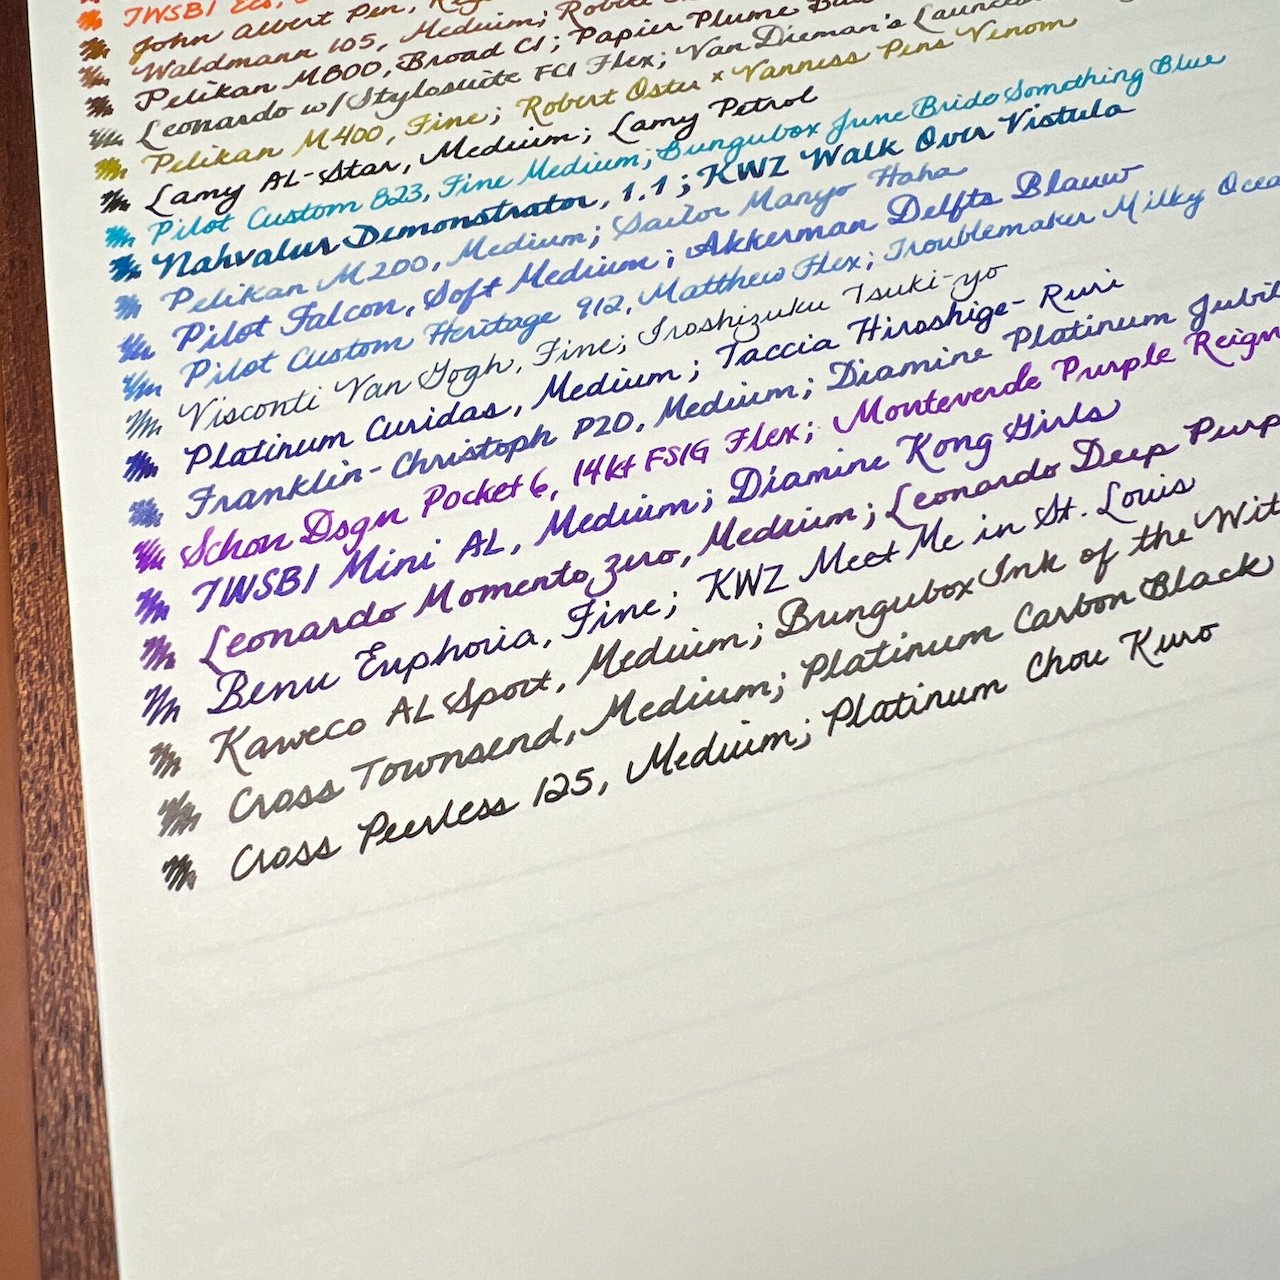 TWSBI Eco,
John Albert Pen,
Waldmann 105, Medium; Robert
Pelikan M800, Broad CI; Papier Plume
Leonardo w/ Stylosuite FCI Flex; Van Dieman's
Pelikan M400, Fine; Robert Oster x Vanness Pens Venom
Lamy AL-Star, Medium; Lamy Petrol
Pilot Custom 823, Fine Medium; Bungubox June Bride Something Blue
Nahvalur Demonstrator, 1.1; KWZ Walk Over Vistula
Pelikan M200, Medium; Sailor Manyo Haha
Pilot Falcon, Soft Medium; Akkerman Delfts Blauw
Pilot Custom Heritage 912, Matthew Flex; Troublemaker Milky Ocea
Visconti Van Gogh, Fine; Iroshizuku Tsuki-yo
Platinum Curidas, Medium; Taccia Hiroshige-Ruri
Franklin-Christoph P20, Medium; Diamine Platinum Jubil
Schon Dsgn Pocket 6, 14kt FSIG Flex; Monteverde Purple Reign
TWSBI Mini AL, Medium; Diamine Kong Girls
Leonardo Momento Zero, Medium; Leonardo Deep Purp
Benu Euphoria, Fine; KWZ Meet Me in St. Louis
Kaweco AL Sport, Medium; Bungubox Ink of the Wit
Cross Townsend, Medium; Platinum Carbon Black
Cross Peerless 125, Medium; Platinum Chou Kuro